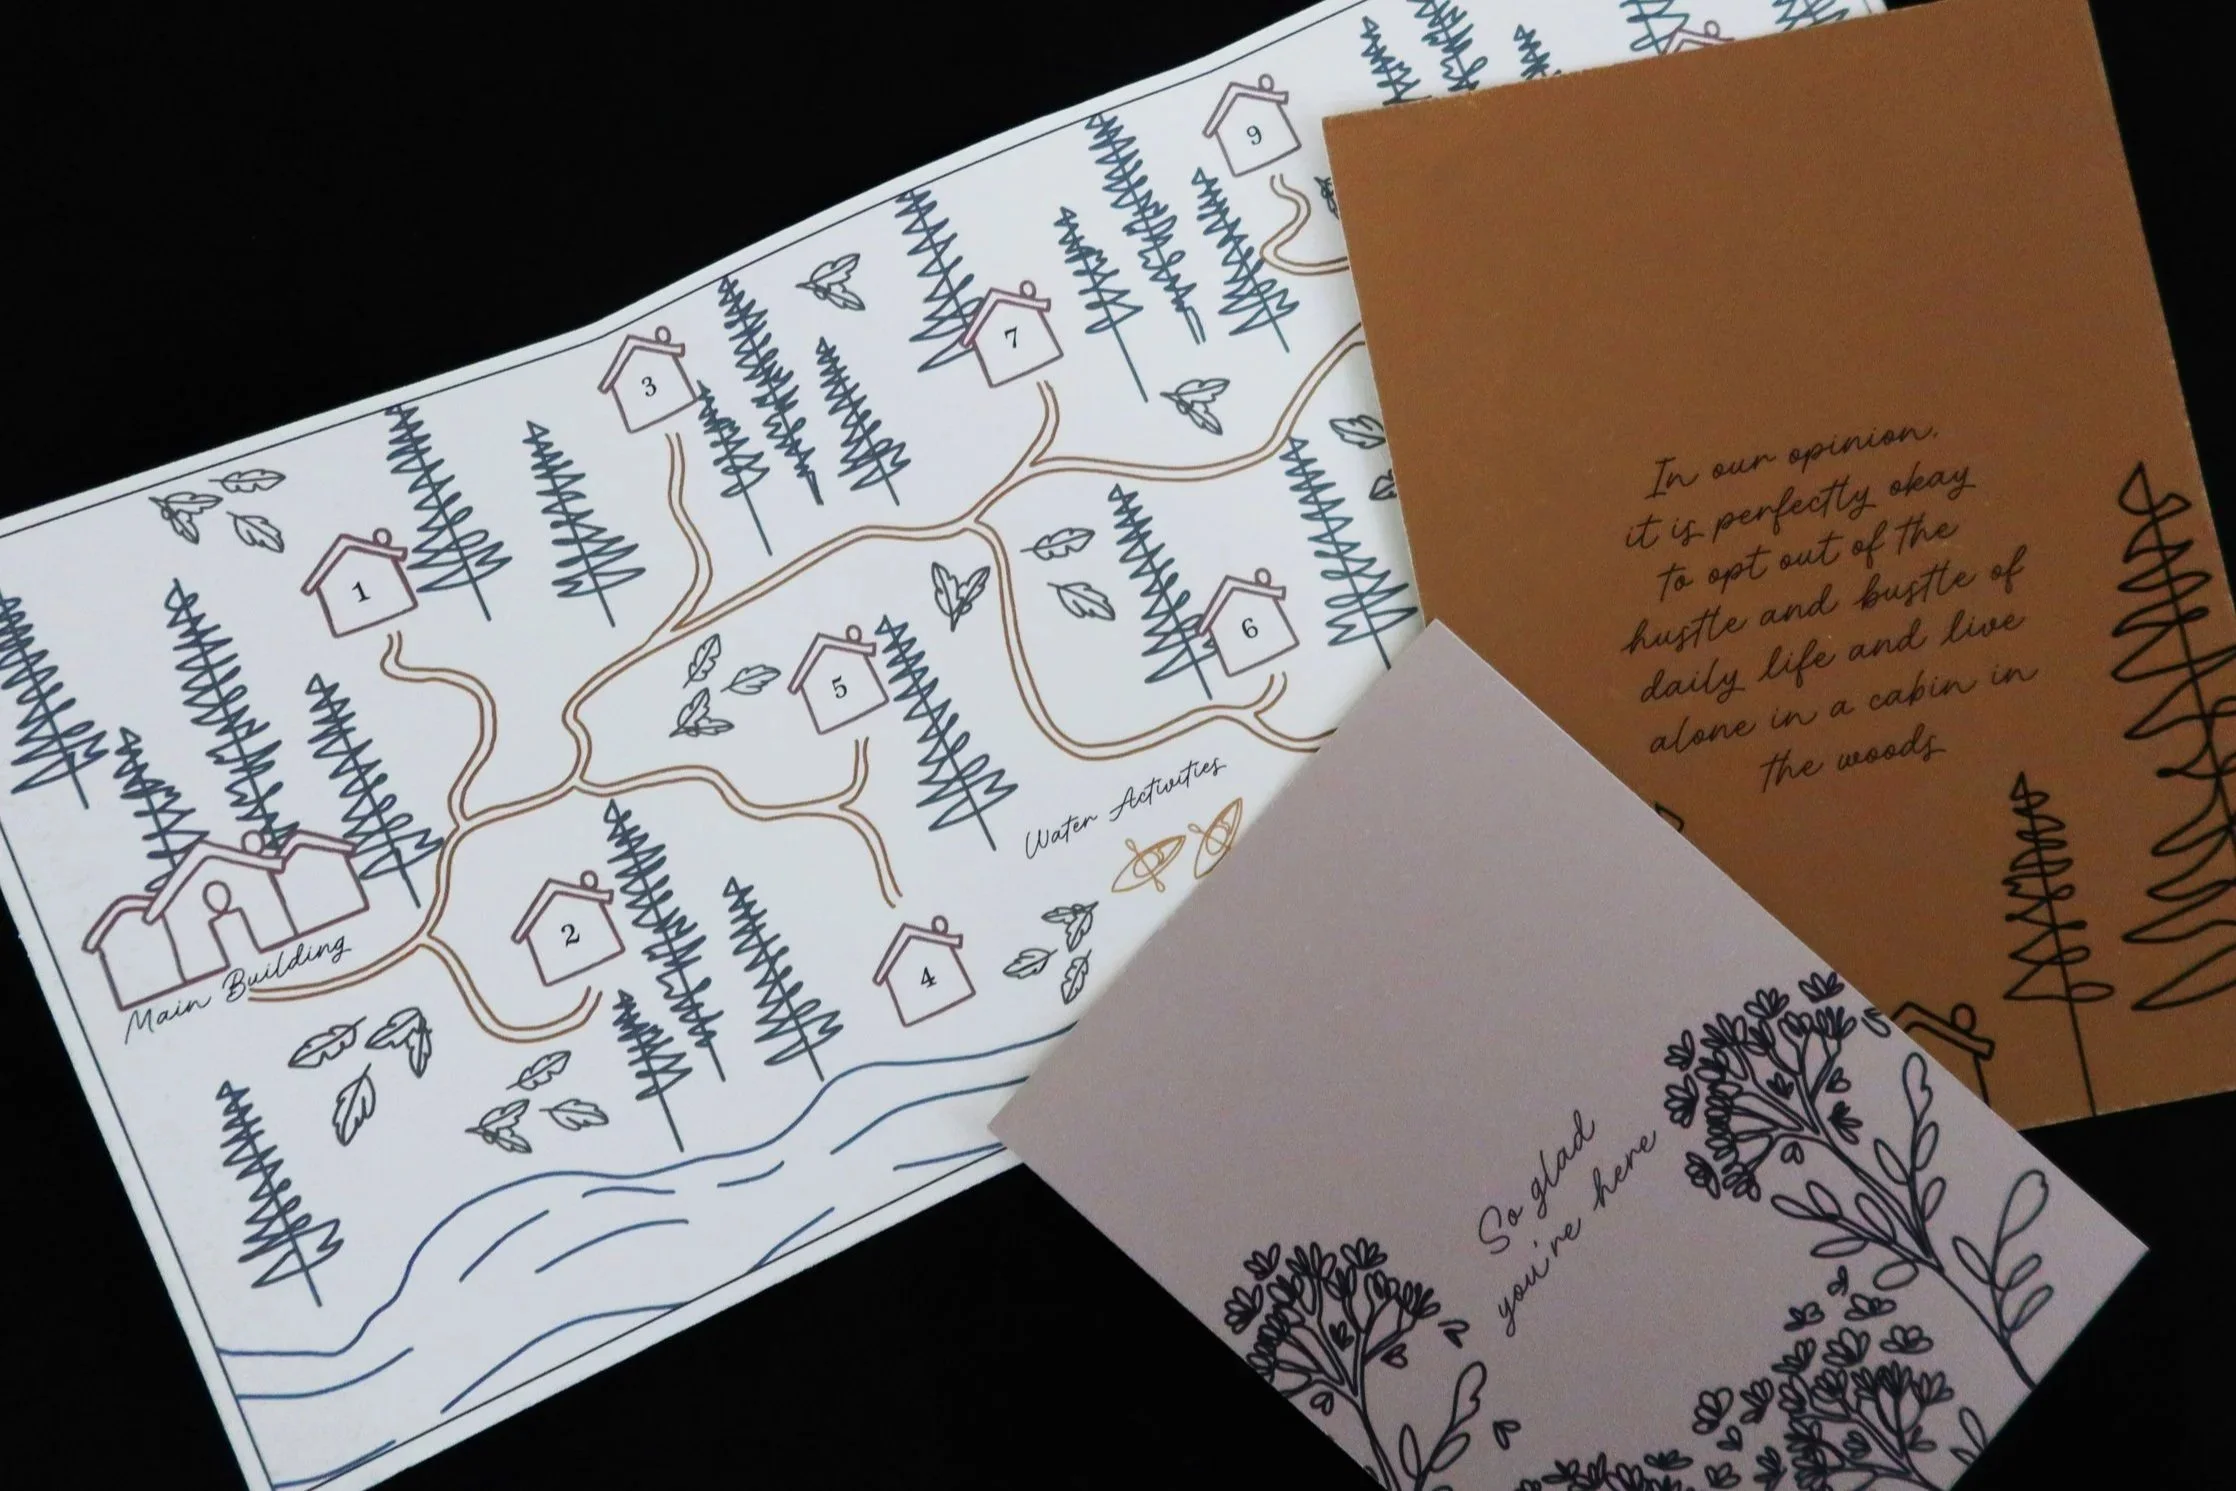 9
7
3
1
6
5
2
4
Main Building
Water Activities
In our opinion,
it is perfectly okay
to opt out of the
hustle and bustle of
daily life and live
alone in a cabin in
the woods
So glad
you're here